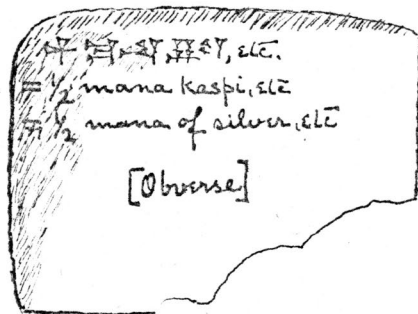 etc.
= ½ mana kaspi, etc
= ½ mana of silver, etc
[Obverse]